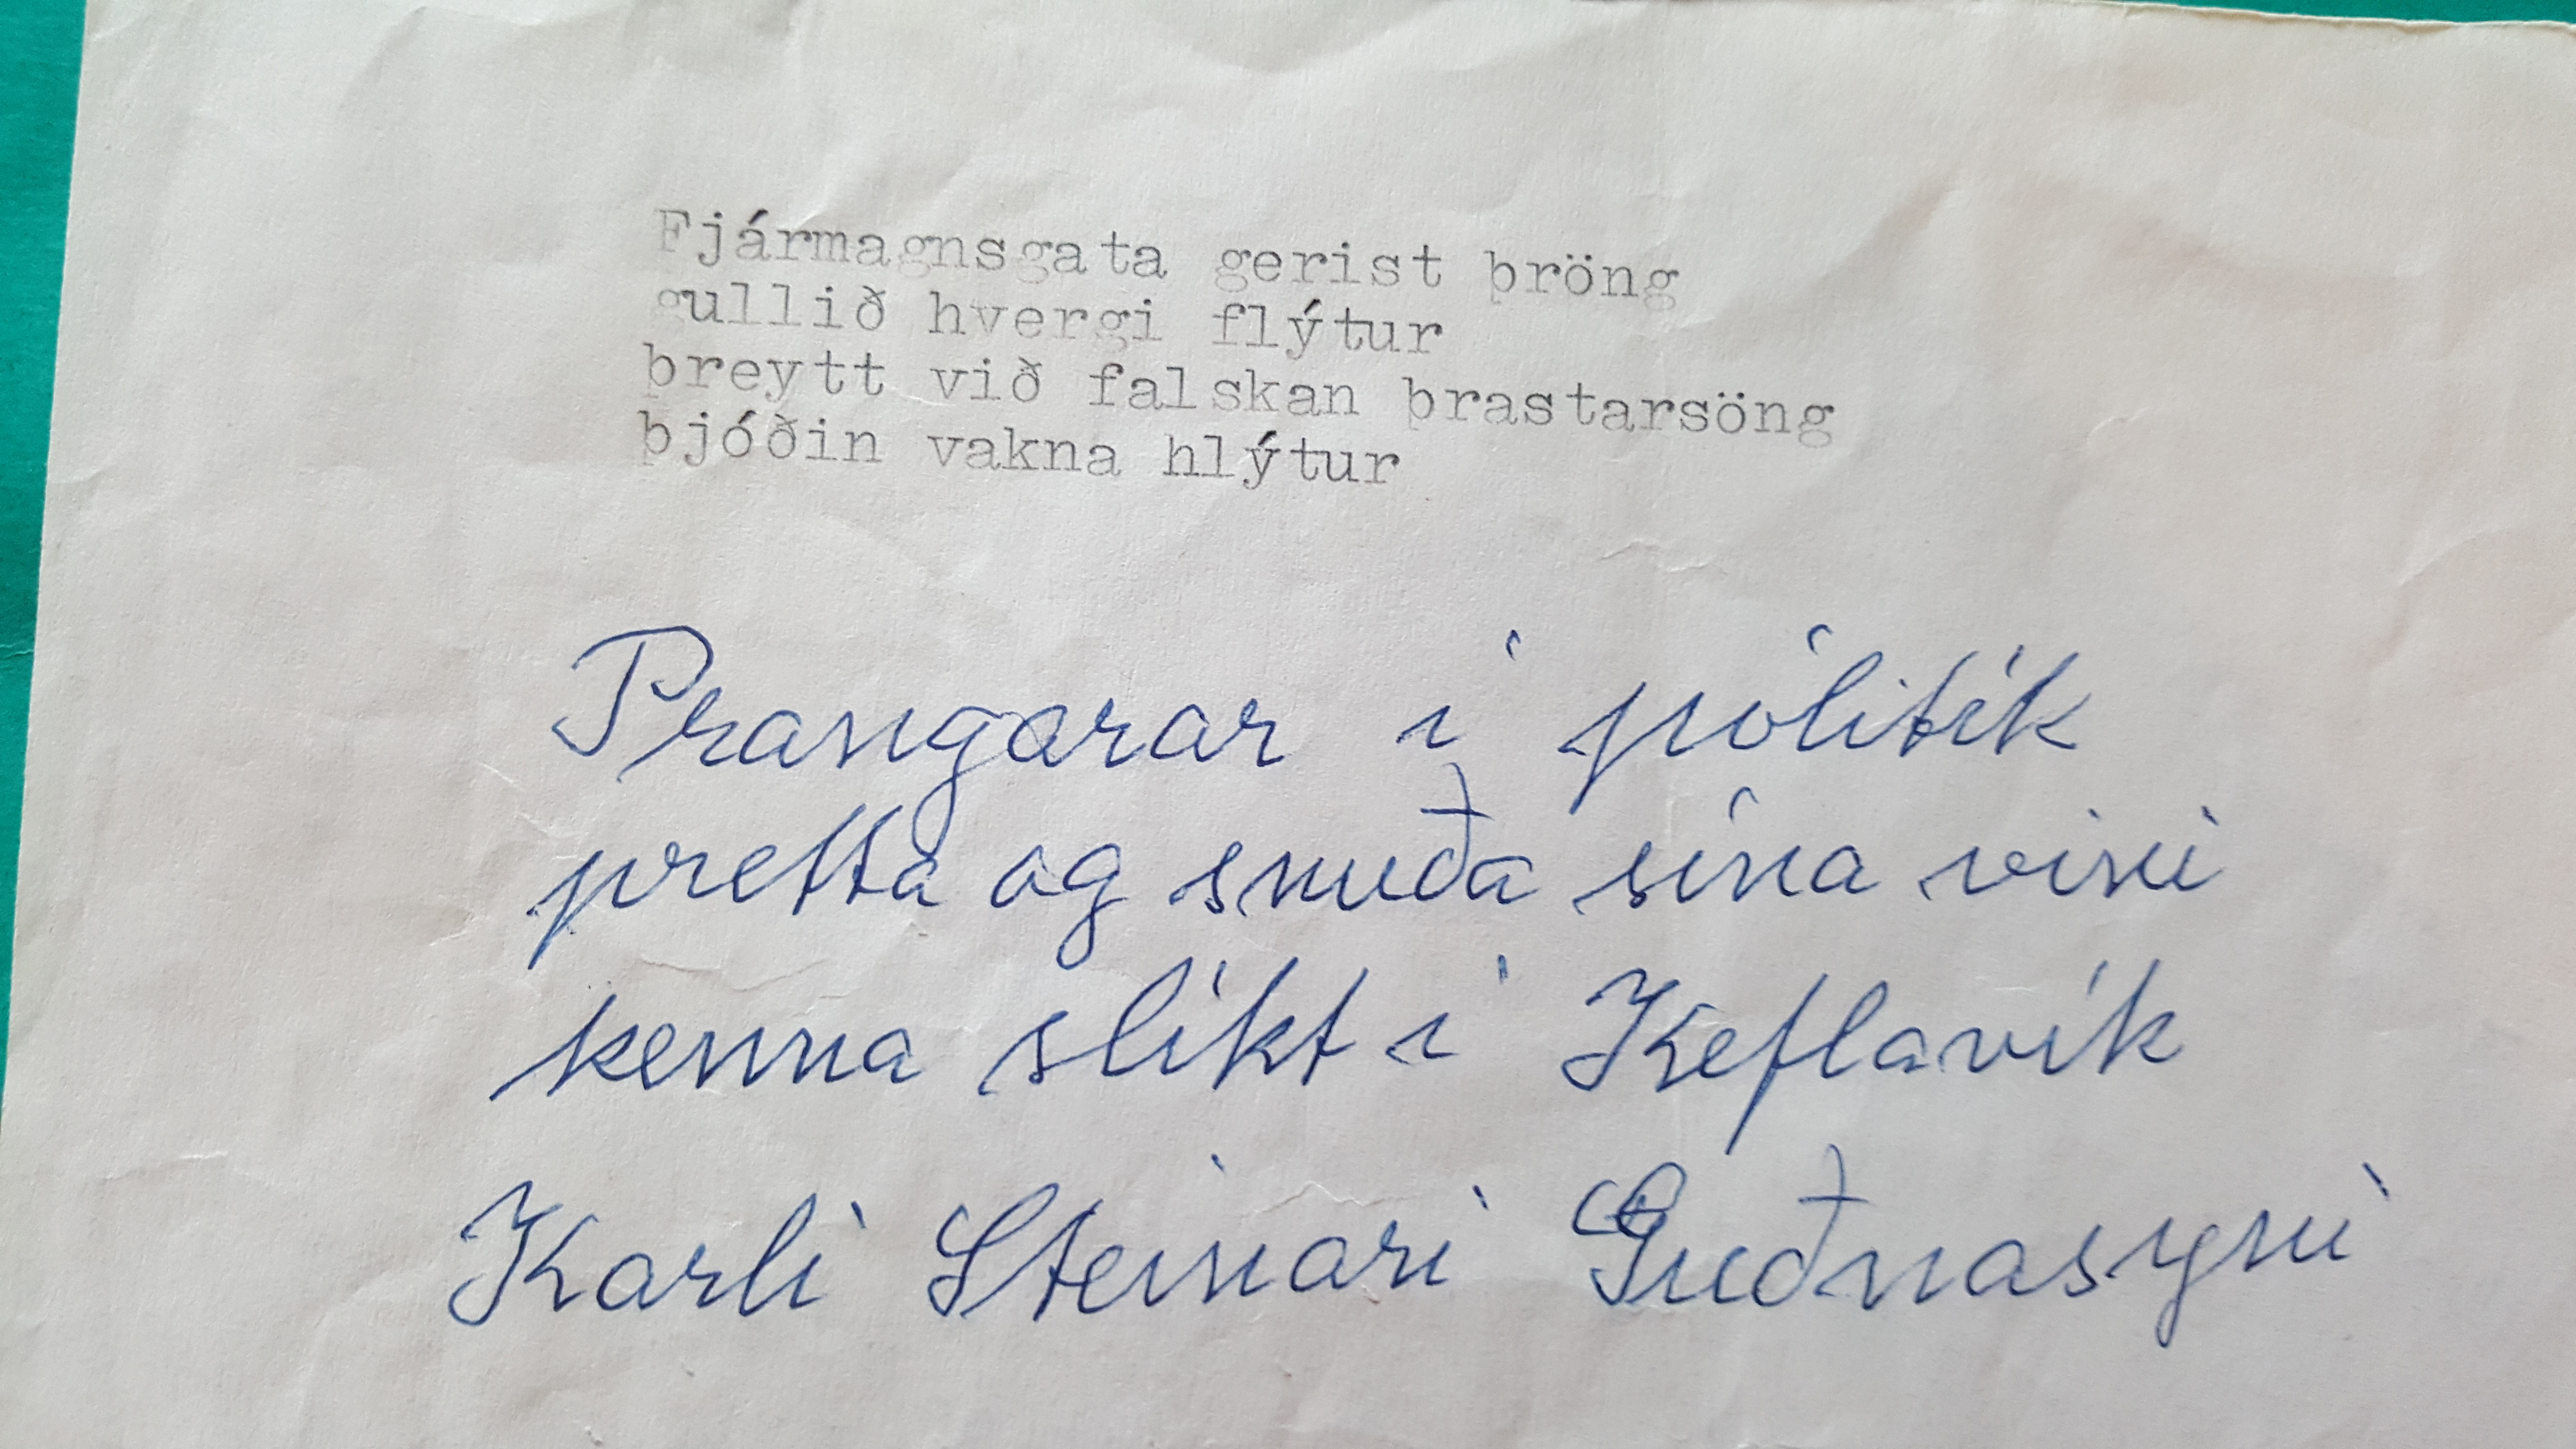 Fjármagnsgata gerist þröng
gullið hvergi flýtur
þreytt við falskan þrastarsöng
þjóðin vakna hlýtur
Prangarar í pólitík
pretta og snuða sína vini
kenna slíkt í Keflavík
Karli Steinari Guðnasyni